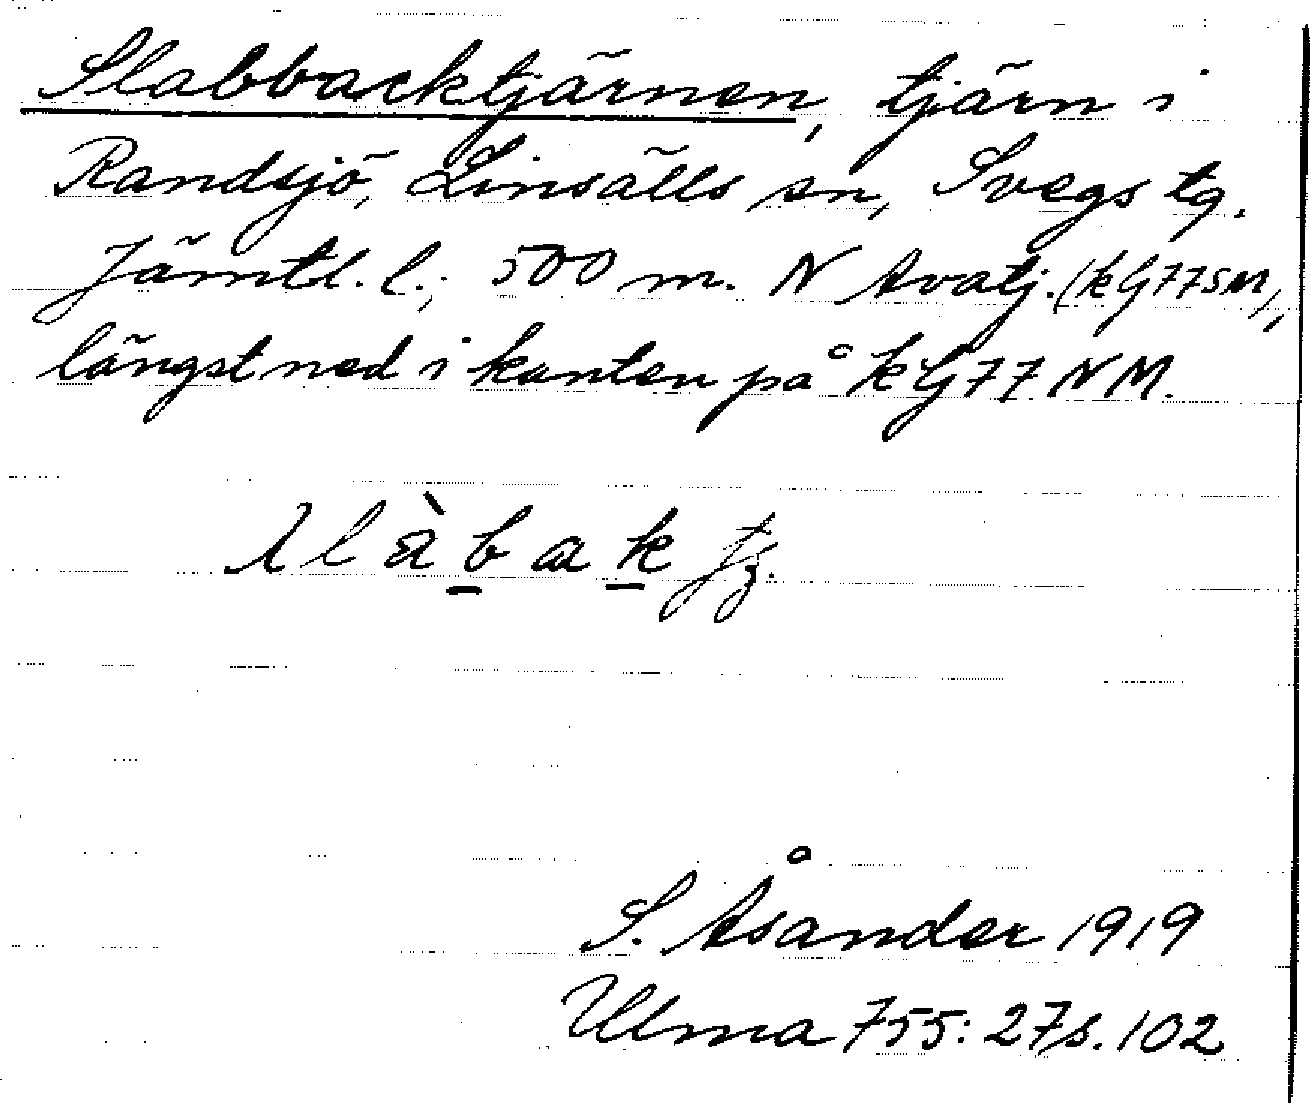 Slabbacktjärnen, tjärn i
Randsjö, Linsälls sn, Svegs tg.
Jämtl. l.; 500 m. N Avatj. (kG77SM),
längst ned i kanten på kG77NM.
S. Åsander 1919
Ulma 755: 27 s. 102